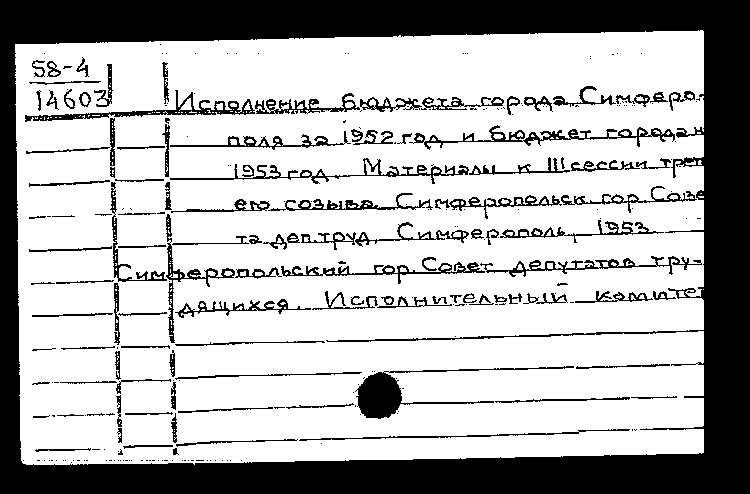 58-4
14603
Исполнение бюджета города Симферо-
поля за 1952 год и бюджет города н
1953 год. Материалы к III сессии трет
его созыва Симферопольск. гор. Сове
та деп. труд. Симферополь, 1953
Симферопольский гор. Совет депутатов тру-
дящихся. Исполнительный комитет